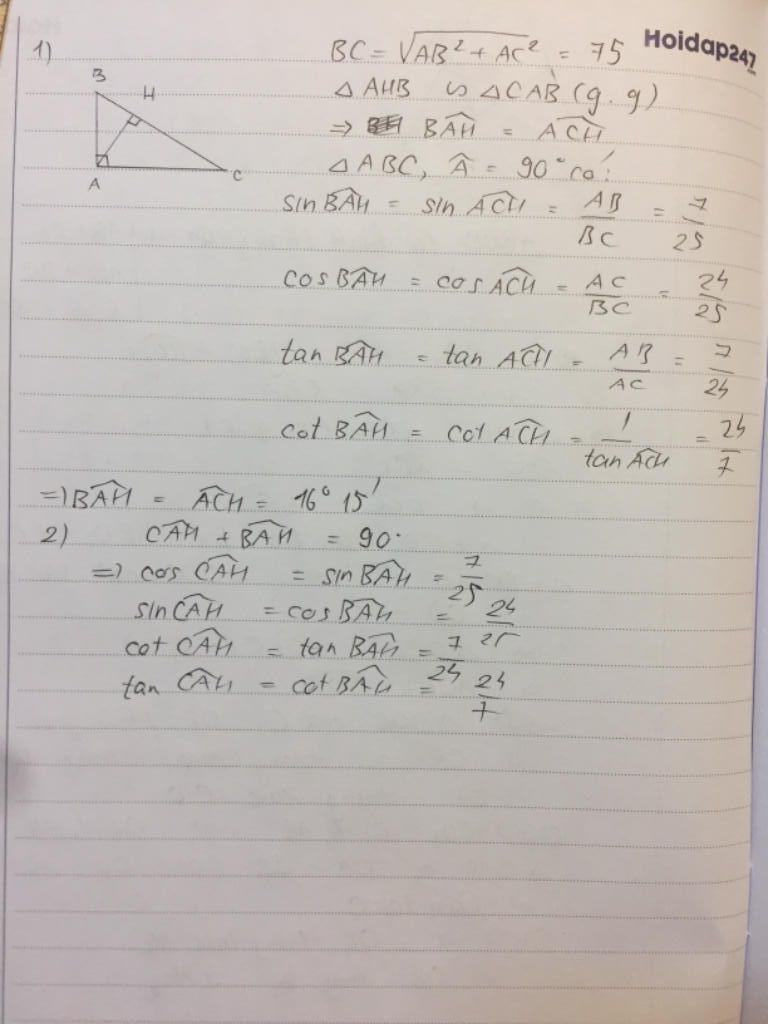 Hoidap247
1) BC = √(AB² + AC²) = 75
B
H
A
C
△AHB ∽ △CAB (g.g)
⇒ BAH^ = ACH^
△ABC, A^ = 90° có:
sin BAH^ = sin ACH^ = AB/BC = 7/25
cos BAH^ = cos ACH^ = AC/BC = 24/25
tan BAH^ = tan ACH^ = AB/AC = 7/24
cot BAH^ = cot ACH^ = 1/tan ACH^ = 24/7
⇒ BAH^ = ACH^ = 16° 15'
2) CAH^ + BAH^ = 90°
⇒ cos CAH^ = sin BAH^ = 7/25
sin CAH^ = cos BAH^ = 24/25
cot CAH^ = tan BAH^ = 7/24
tan CAH^ = cot BAH^ = 24/7